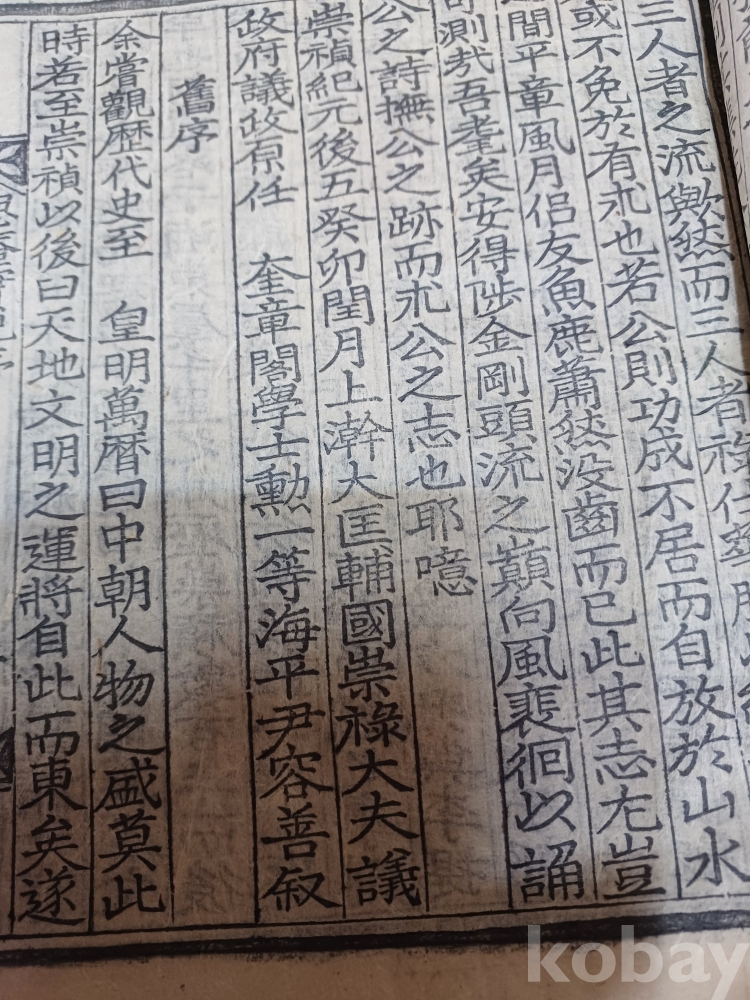 三人者之流歟然而三人者祿仕
或不免於有求也若公則功成不居而自放於山水
間平章風月侶友魚鹿蕭然没齒而已此其志尤豈
可測哉吾耄矣安得陟金剛頭流之巔向風裵徊以誦
公之詩撫公之跡而求公之志也耶噫
崇禎紀元後五癸卯閏月上澣大匡輔國崇祿大夫議
政府議政原任 奎章閣學士勳一等海平尹容善叙
舊序
余嘗觀歷代史至 皇明萬曆曰中朝人物之盛莫此
時若至崇禎以後曰天地文明之運將自此而東矣遂
kobay